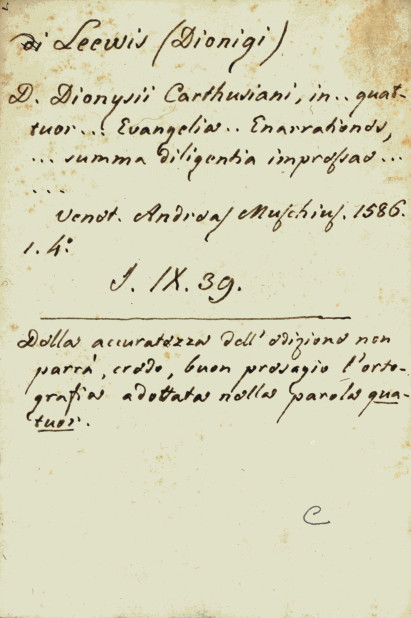 di Leewis (Dionigi)
D. Dionysii Carthusiani, in .. quat-
tuor ... Evangelia .. Enarrationes,
... summa diligentia impressae ...
...
Venet. Andreas Muschius. 1586.
1. 4°
J. IX. 39.
Della accuratezza dell' edizione non
parrà, credo, buon presagio l'orto-
grafia adottata nella parola qua-
tuor.
C